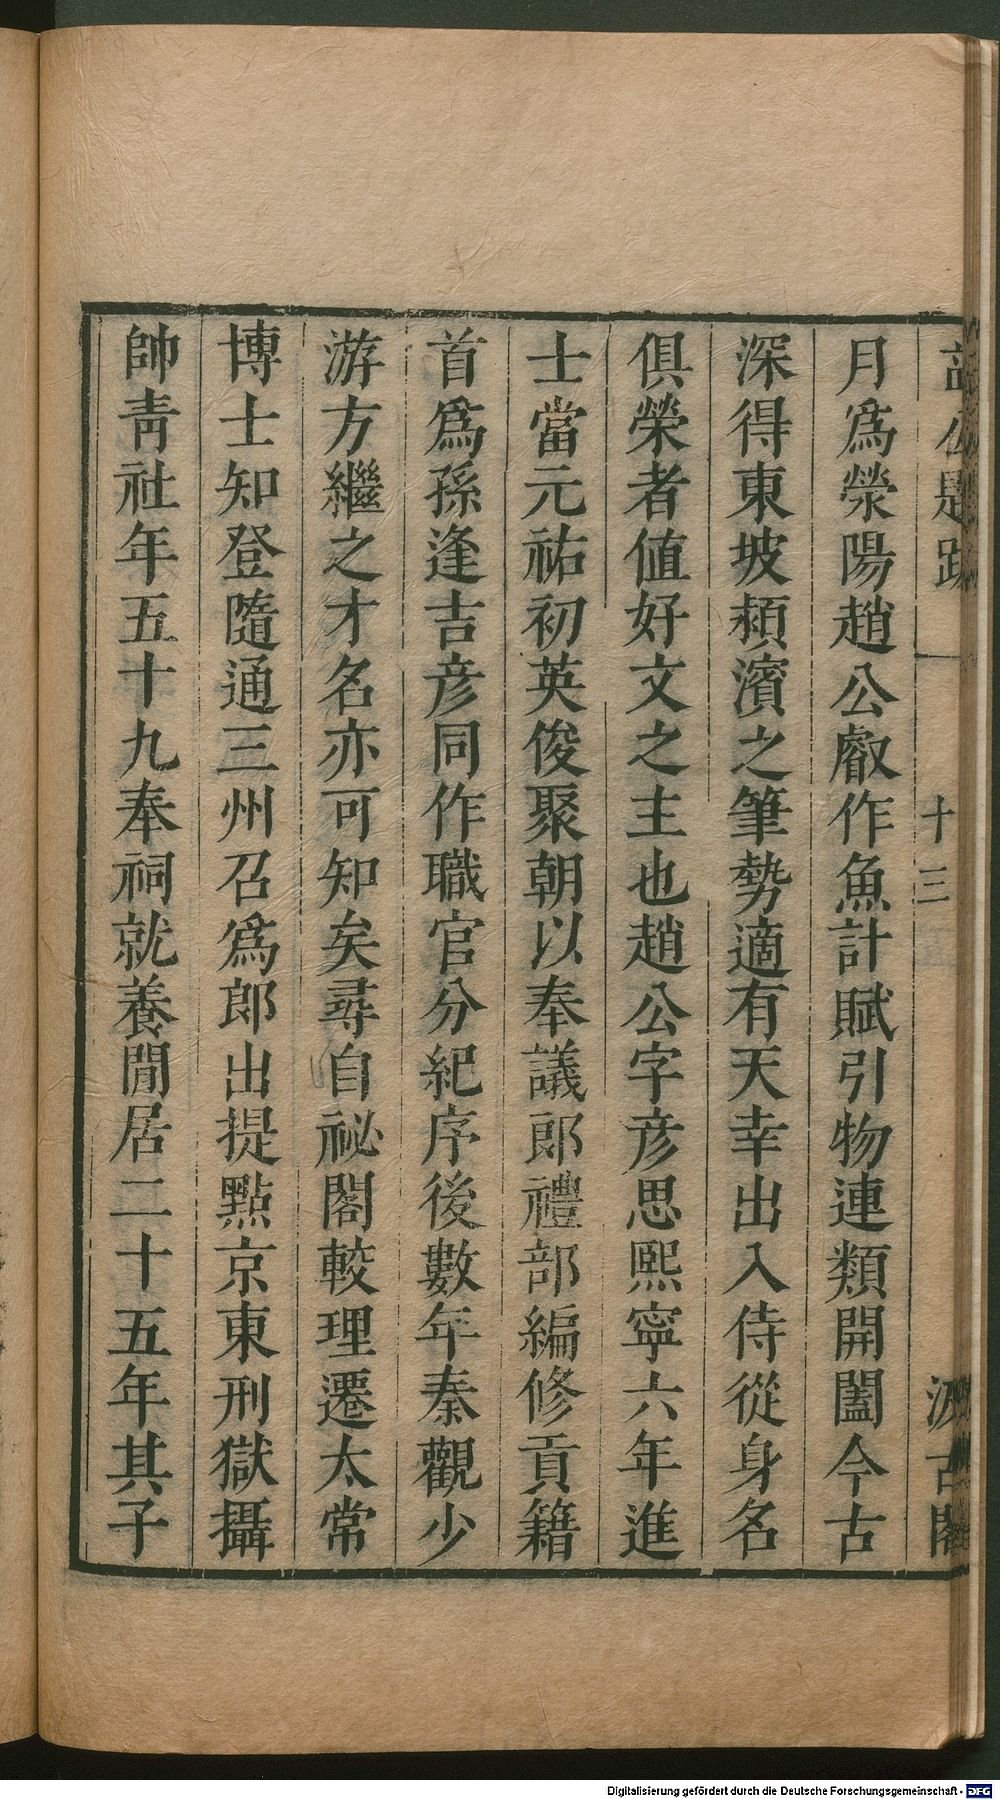 月爲滎陽趙公叡作魚計賦引物連類開闔今古
深得東坡潁濱之筆勢適有天幸出入侍從身名
俱榮者値好文之主也趙公字彥思熙寧六年進
士當元祐初英俊聚朝以奉議郎禮部編修貢籍
首爲孫逢吉彥同作職官分紀序後數年秦觀少
游方繼之才名亦可知矣尋自祕閣較理遷太常
博士知登隨通三州召爲郎出提點京東刑獄攝
帥青社年五十九奉祠就養閒居二十五年其子
十三
汲古閣
Digitalisierung gefördert durch die Deutsche Forschungsgemeinschaft - DFG